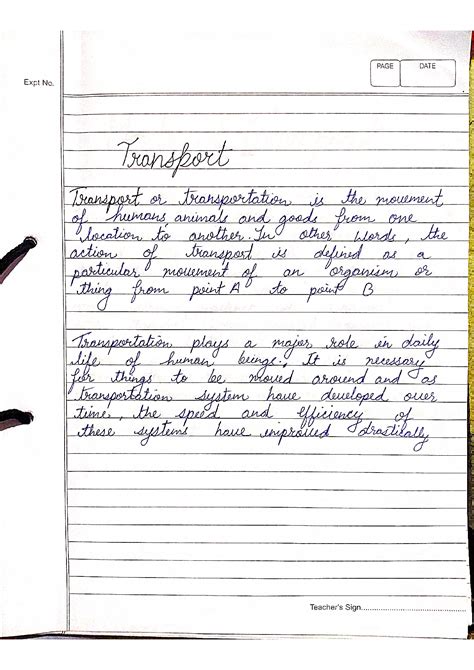 PAGE DATE
Expt No.
Transport
Transport or transportation is the movement
of humans animals and goods from one
location to another. In other words, the
action of transport is defined as a
particular movement of an organism or
thing from point A to point B
Transportation plays a major role in daily
life of human beings. It is necessary
for things to be moved around and as
transportation system have developed over
time, the speed and efficiency of
these systems have improved drastically
Teacher's Sign.....................................